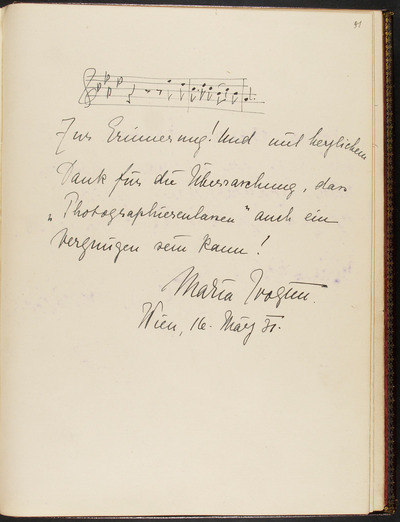 91
Zur Erinnerung! Und mit herzlichem
Dank für die Überraschung, dass
„Photographierenlassen" auch ein
Vergnügen sein kann!
Maria Ivogün.
Wien, 16. März 31.